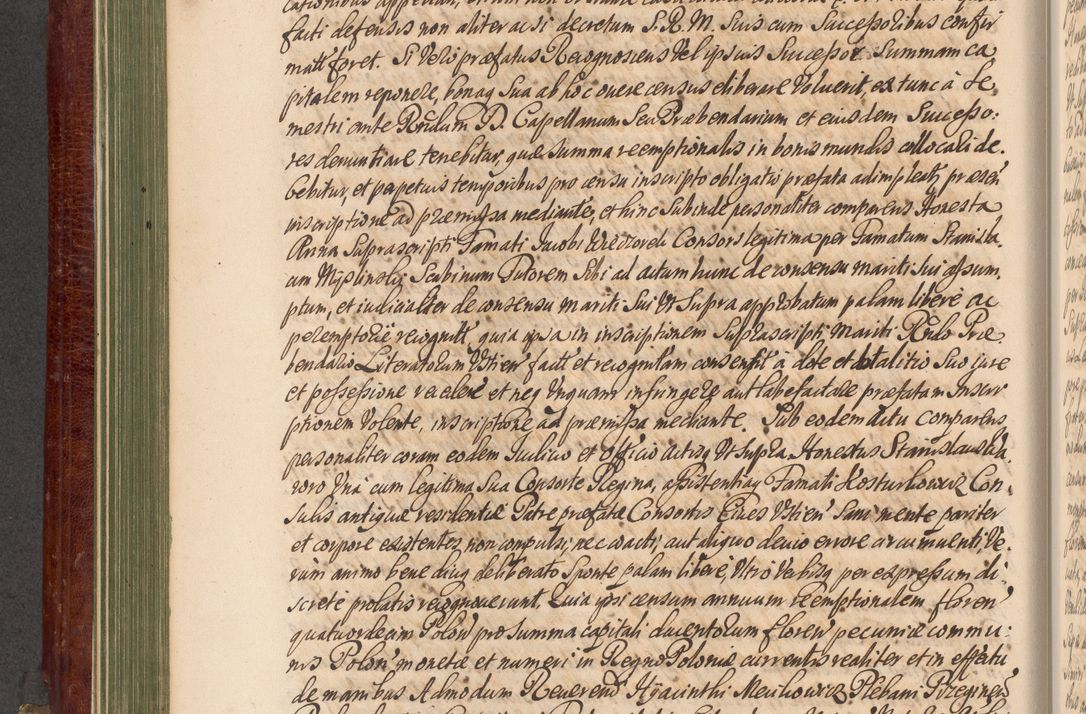 facti defensis non aliter ac si decretum S. R. M. Suis cum Successoribus confir
matt foret. Si Vero præfatus Recognoscens Vel ipsius Successor Summam ca
pitalem reponere, bonaq Sua ab hoc onere census eliberare Voluerit, ex tunc à Se,
mestri ante Rndum D. Capellanum Seu Præbendarium et eiusdem Successo:
res denuntiare tenebitur, quæ Summa reemptionalis in bonis mundis collocari de,
bebitur, et perpetuis temporibus pro censu inscripto obligatis præfata adimpleatr, præsen
inscriptione ad præmissa mediante, et hinc Subinde personaliter comparens Honesta
Anna Suprascripti Famati Jacobi Wieczorek Consors legitima per Famatum Stanisla,
um Myslinski Scabinum Tutorem Sibi ad actum hunc de consensu mariti Sui assum,
ptum, et iudicialiter de consensu mariti Sui Vt Supra approbatum palam libere ac
peremptorie recognit, quia ipsa in inscriptionem Suprascripti Mariti Rndo Præ
bendario Literatorum Vstien fact et recognitam consentit à dote et dotalitio Suo iure
et possessione recedere et neq Vnquam infringere aut labefactare præfatam Inscri
ptionem Volente, inscriptione ad præmissa mediante. Sub eodem actu comparens
personaliter coram eodem Iudicio et Officio actisq Vt Supra Honestus Stanislaus
woro Vna cum legitima Sua Consorte Regina, assistentiaq Famati Kosturkowicz Con,
sulis antiquæ residentiæ Patre præfatæ Consortis Cives Vstien Sani mente pariter
et corpore existentes, non compulsi, nec coacti, aut aliquo devio errore circumventi, Ve,
rum animo bene diuq deliberato Sponte palam libere, Vtro Verbisq per expressum di,
screte prolatis recognoverunt, Quia ipsi censum annuum reemptionalem floren
quatuordecim Polon pro summa capitali ducentorum floren pecuniæ commu:
nis Polon monetæ et numeri in Regno Poloniæ currentis realiter et in effectu
de manibus Admodum Reverend Hyacinthi Plebani